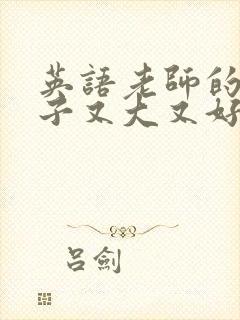 英語老師的
子又大又好
呂劍